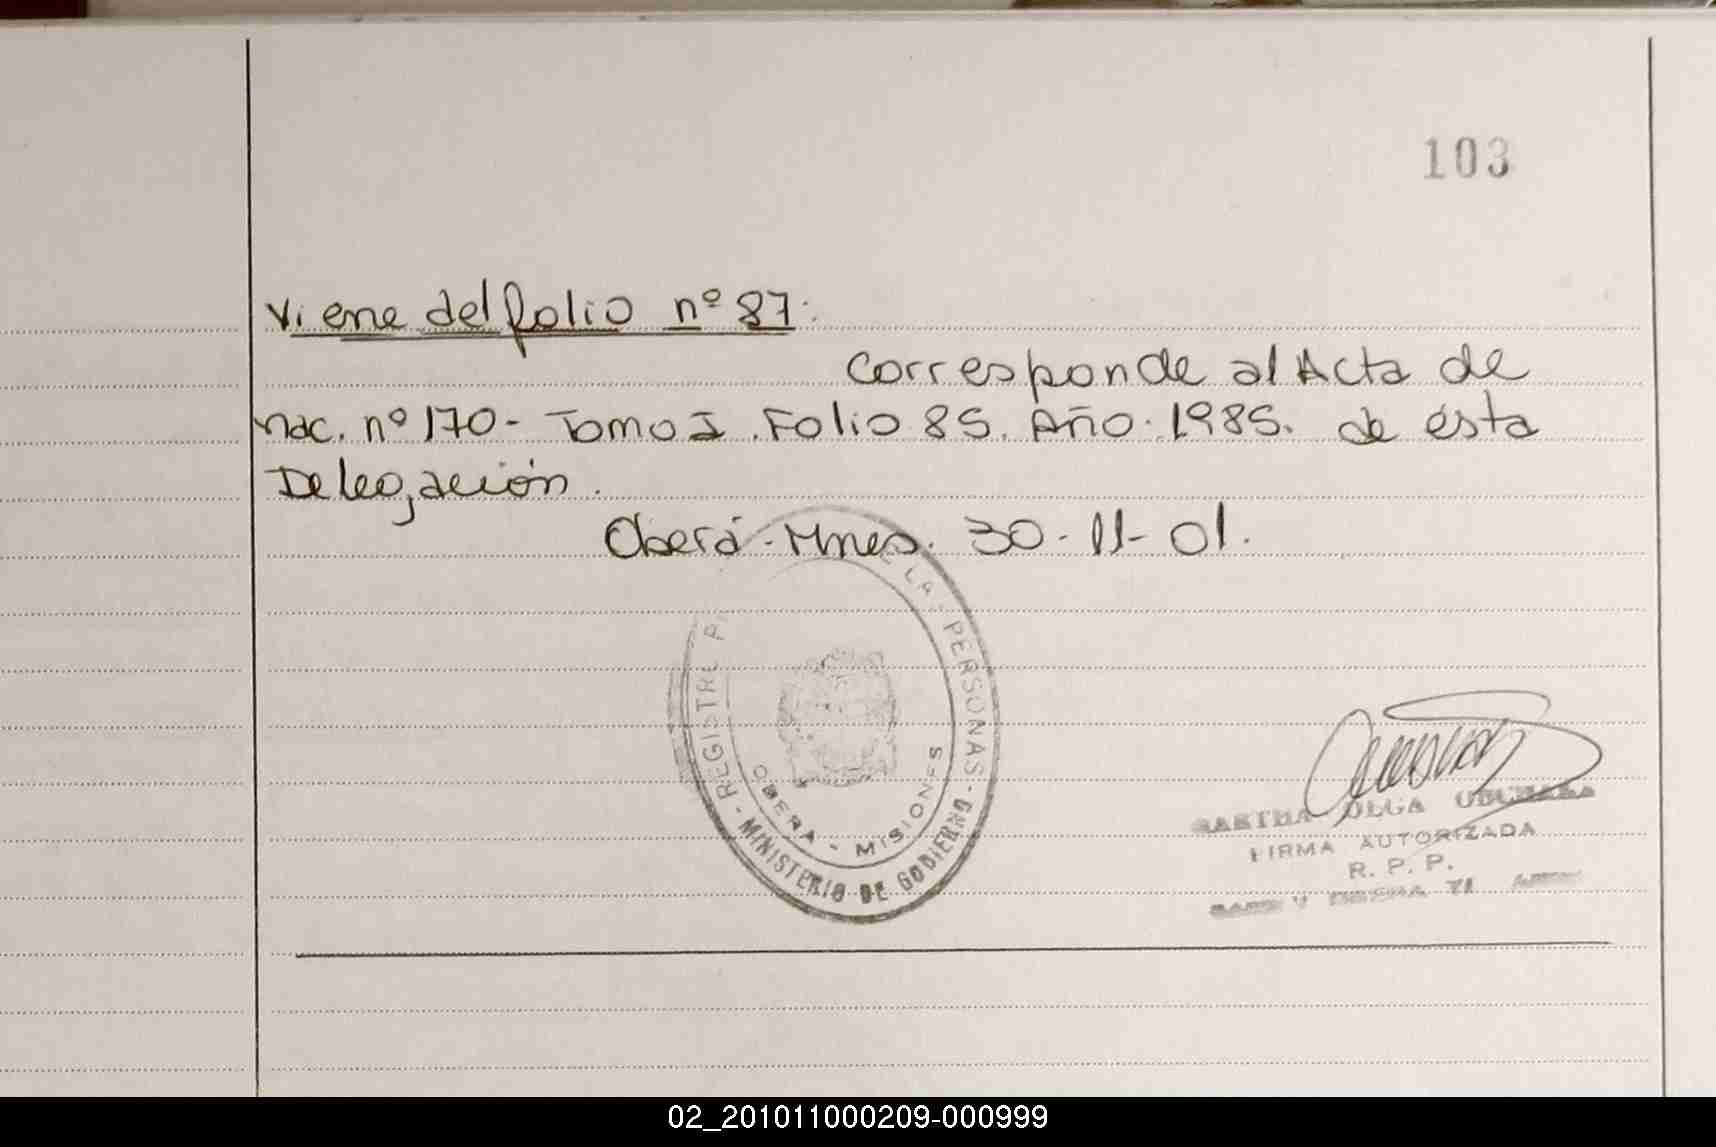 103
Viene del folio nº 87.
Corresponde al Acta de
Nac. nº 170- Tomo I. Folio 85. Año. 1985. de ésta
Delegación.
Oberá-Mnes. 30-11-01.
LA PERSONAS
OBERA - MISIONES
MINISTERIO DE GOBIERNO
OLGA
FIRMA AUTORIZADA
R. P. P.
02_201011000209-000999